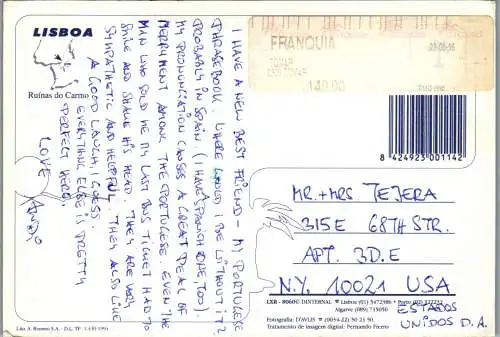 LISBOA
Ruínas do Carmo
I HAVE A NEW BEST FRIEND - MY PORTUGESE
PHRASEBOOK. WHERE WOULD I BE WITHOUT IT?
PROBABLY IN SPAIN. (I HAVE SPANISH ONE TOO).
MY PRONUNCIATION CAUSES A GREAT DEAL OF
MERRYMENT AMONG THE PORTUGESE. EVEN THE
MAN WHO SOLD ME MY LAST BUS TICKET HAD TO
SMILE AND SHAKE HIS HEAD. THEY ARE VERY
SYMPATHETIC AND HELPFUL. THEY ALSO LIKE
A GOOD LAUGH, I GUESS.
EVERYTHING ELSE IS PRETTY
PERFECT HERE.
LOVE
FRANQUIA
TOMAR
2300 TOMAR
140.00
8 424923 001142
MR. + MRS TEJERA
315 E 68TH STR.
APT. 3D.E
N.Y. 10021 USA
ESTADOS
UNIDOS D.A.
LXR - 8060C DINTERNAL Lisboa (01) 5472386 Porto
Algarve (089) 715050
Fotografia: D'AVLIS (0034-22) 50 21 91
Tratamento de imagem digital: Fernando Ficero
Lito A. Romero S.A. - D.L. TF. 1.430-1991